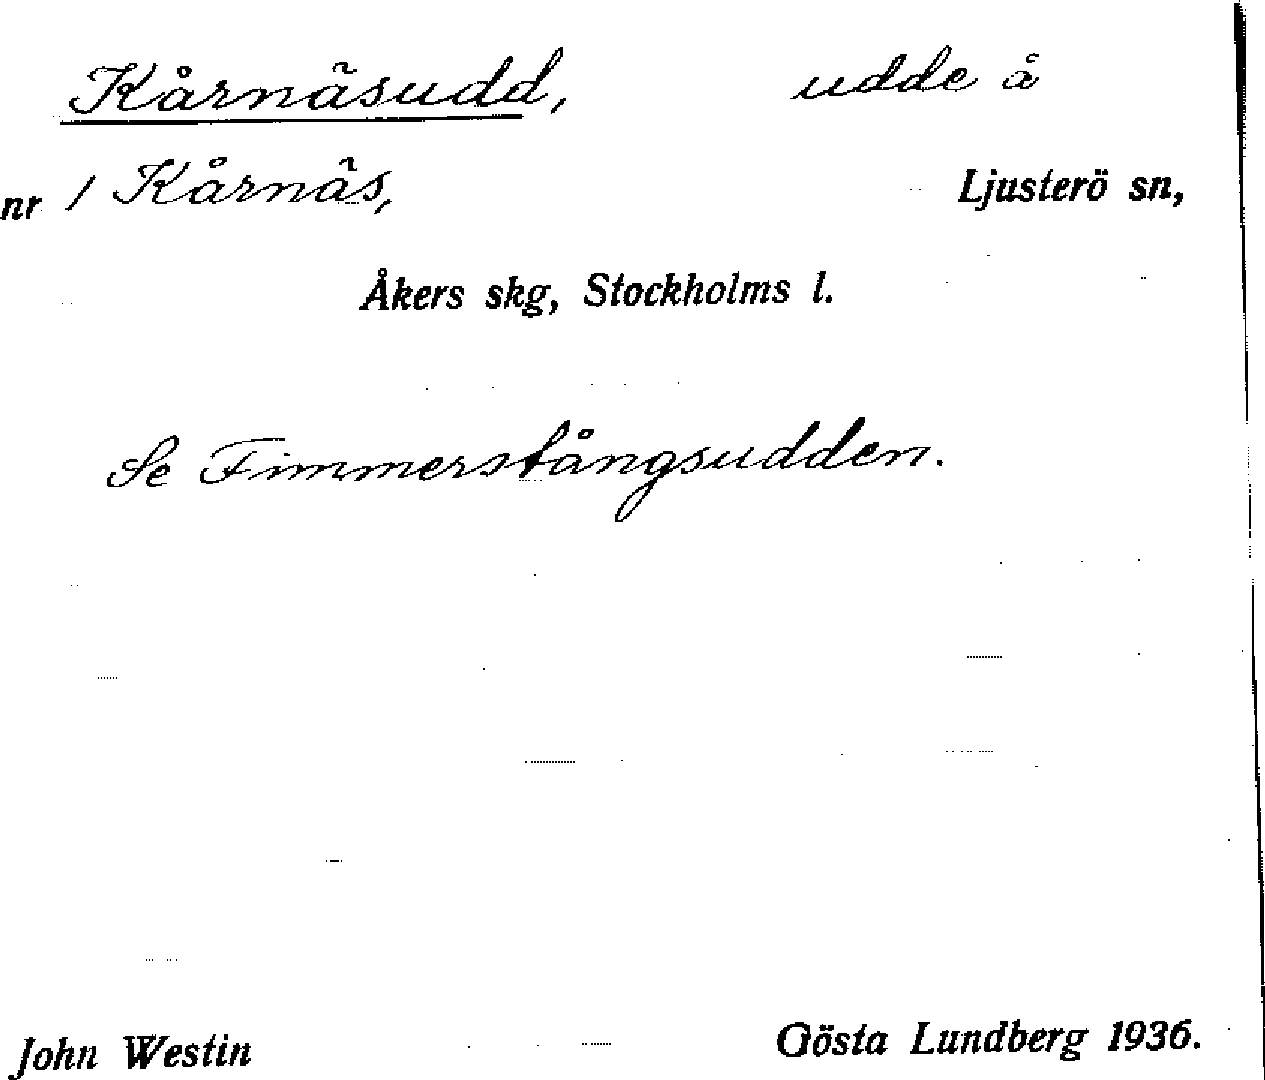 Kårnäsudd, udde å
nr 1 Kårnäs, Ljusterö sn,
Åkers skg, Stockholms l.
Se Fimmerstångsudden.
John Westin Gösta Lundberg 1936.